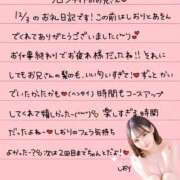 12/3 のお礼日記です♡この前はしおりとあそん
でくれてありがとうございました(^^)♥
お仕事終わりでお疲れ様だったね!!それに
してもお兄さんの髪の毛、いい匂いすぎて!♥ずっとかい
でいたかったかも♥(ヘンタイ)時間もコースアップ
してくれて嬉しかった〜(^^) 楽しすぎる時間
だったよね〜♥しおりのフェラ気持ち
よかった〜?
しおり